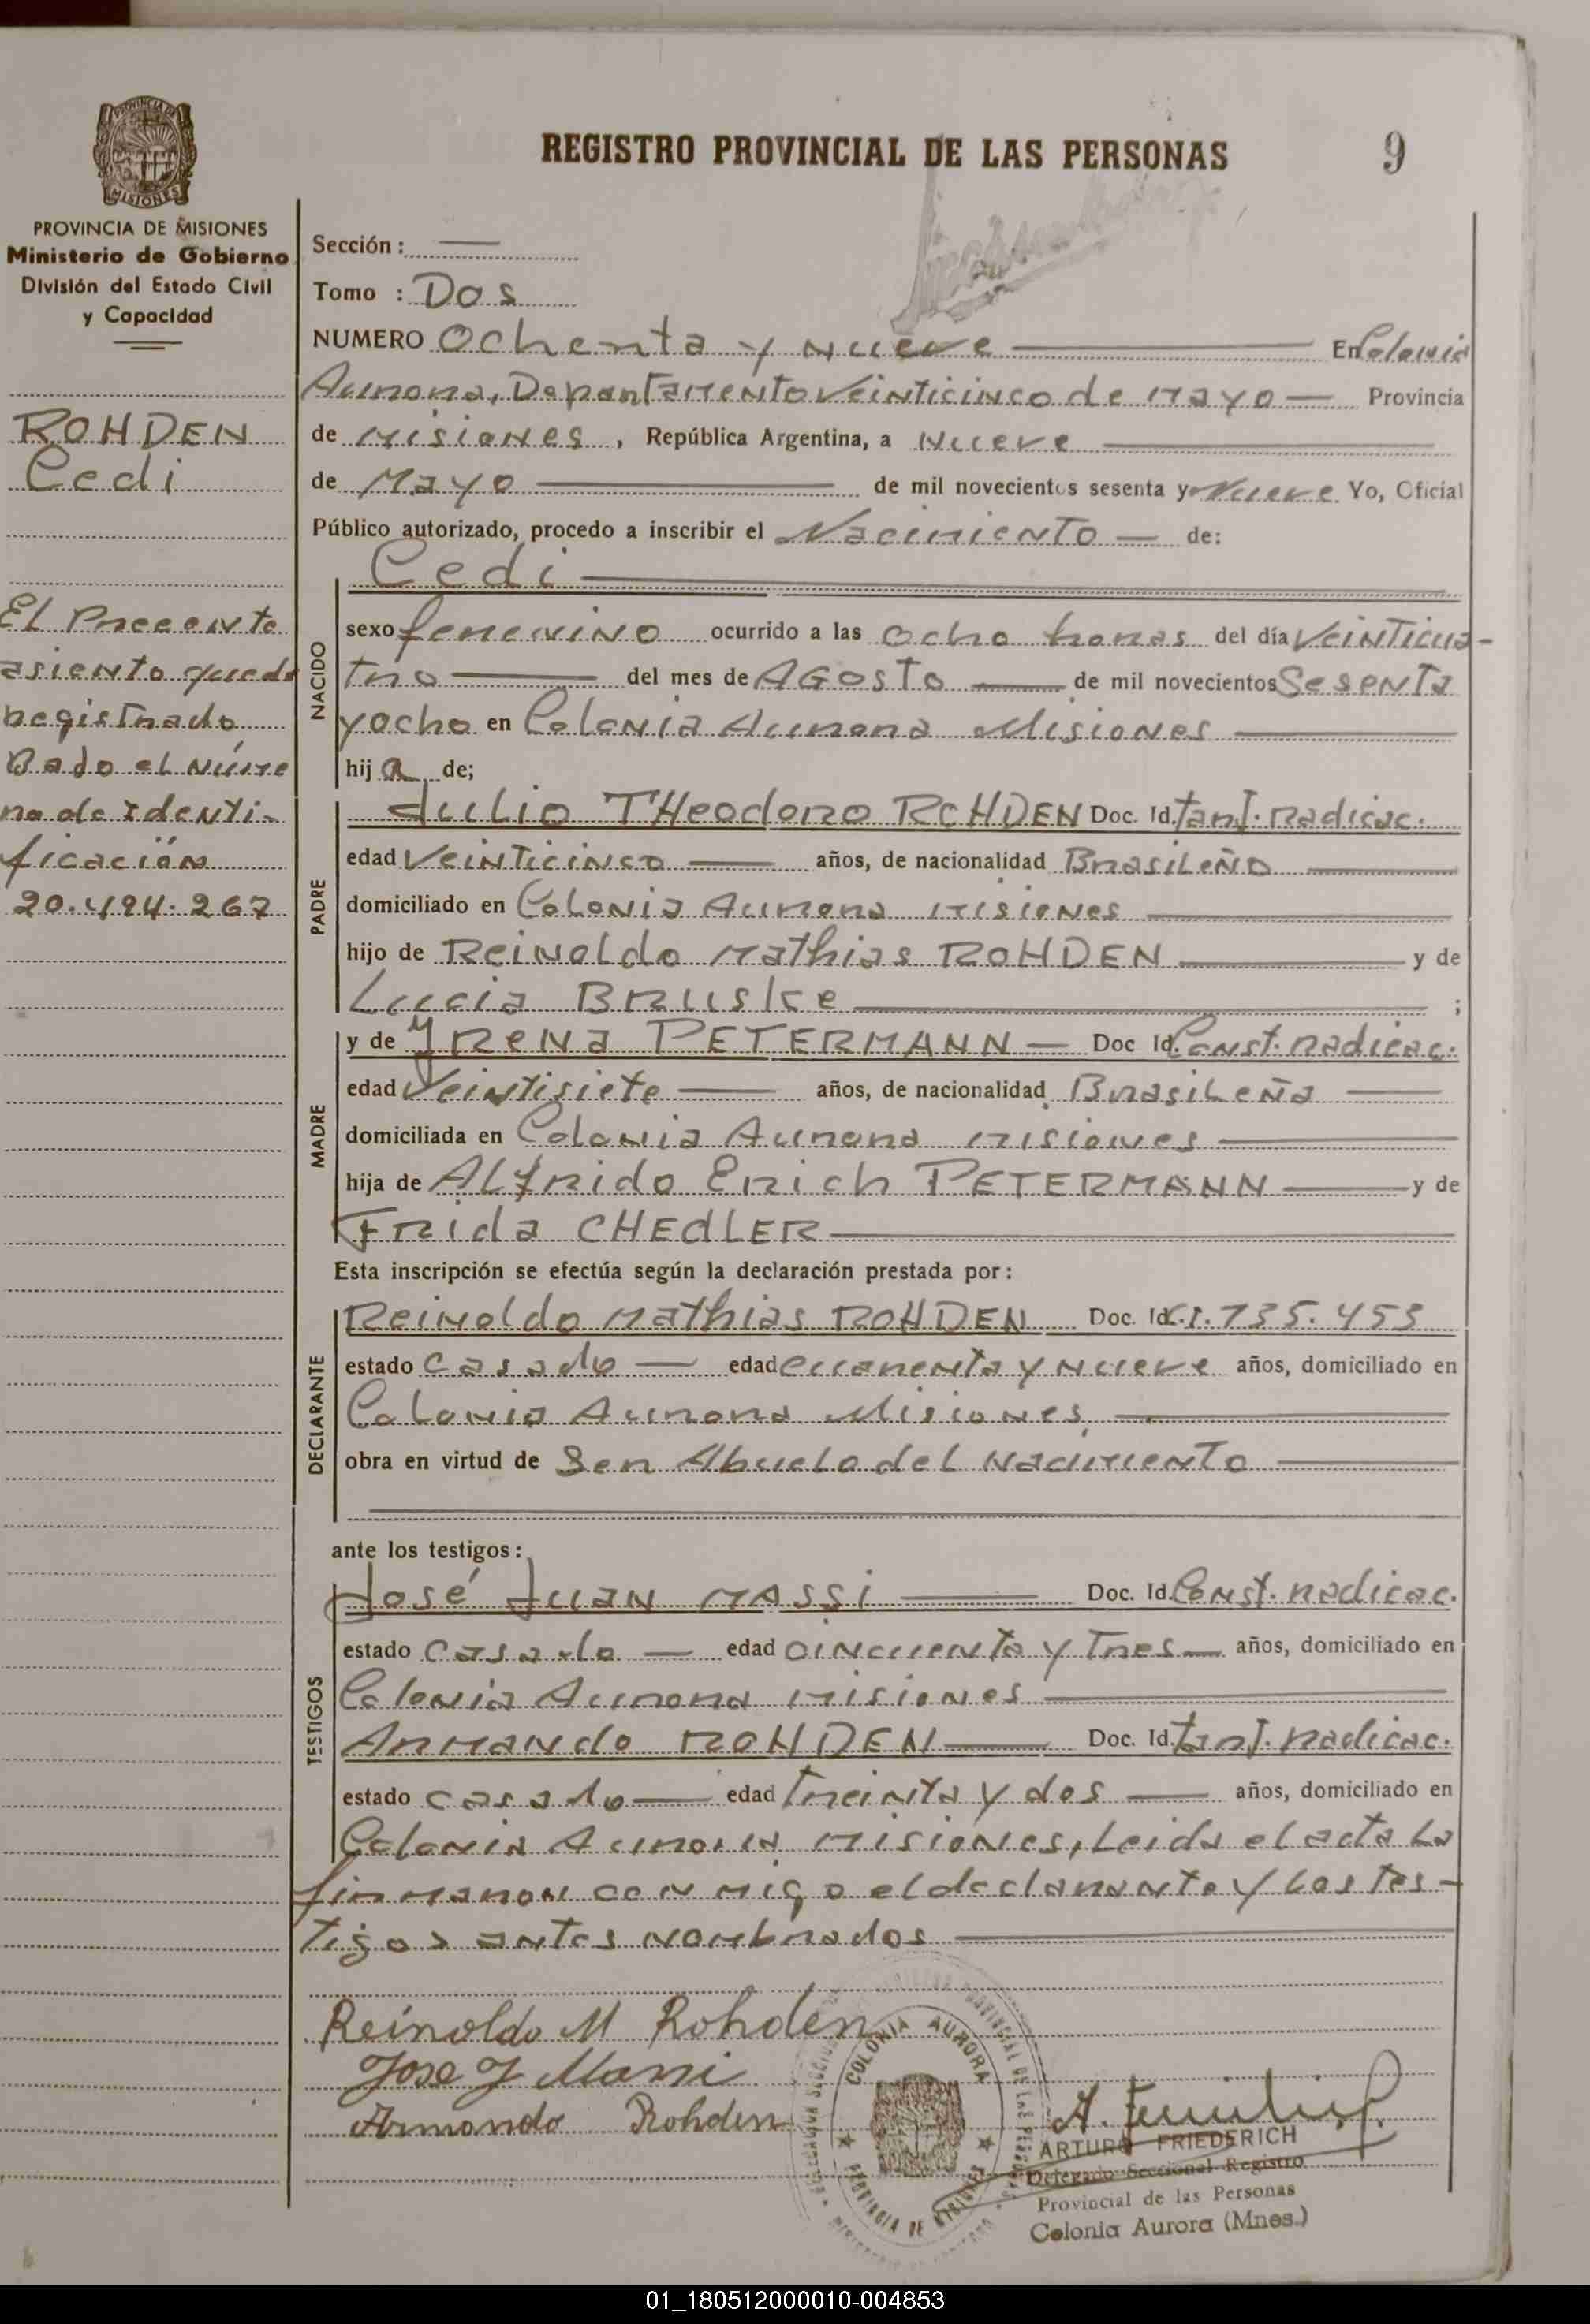 REGISTRO PROVINCIAL DE LAS PERSONAS
9
MISIONES
PROVINCIA DE MISIONES
Ministerio de Gobierno
División del Estado Civil
y Capacidad
ROHDEN
Cedi
El Preecente
asiento queda
registrado
Bajo el Núme
ro de Identi-
ficación
20.494.267
Sección :
Tomo : Dos
NUMERO Ochenta y nueve En Colonia
Aurora, Departamento Veinticinco de Mayo Provincia
de Misiones, República Argentina, a Nueve
de Mayo de mil novecientos sesenta y Nueve Yo, Oficial
Público autorizado, procedo a inscribir el Nacimiento de:
Cedi
NACIDO
sexo femenino ocurrido a las ocho horas del día Veinticua-
tro del mes de AGOSTO de mil novecientos Sesenta
y ocho en Colonia Aurora Misiones
hija de;
PADRE
Julio THeodoro ROHDEN Doc. Id. tarj. Radicac.
edad Veinticinco años, de nacionalidad Brasileño
domiciliado en Colonia Aurora Misiones
hijo de Reinoldo Mathias ROHDEN y de
Lucia Bruske ;
MADRE
y de Yrena PETERMANN Doc Id. Const. radicac.
edad Veintisiete años, de nacionalidad Brasileña
domiciliada en Colonia Aurora Misiones
hija de Alfrido Erich PETERMANN y de
Frida CHEdLER
Esta inscripción se efectúa según la declaración prestada por :
DECLARANTE
Reinoldo Mathias ROHDEN Doc. Id. C.I. 735.453
estado casado edad cuarenta y nueve años, domiciliado en
Colonia Aurora Misiones
obra en virtud de Ser Abuelo del Nacimiento
ante los testigos :
TESTIGOS
José Juan MASSI Doc. Id. Const. radicac.
estado casado edad cincuenta y tres años, domiciliado en
Colonia Aurora Misiones
Armando ROHDEN Doc. Id. tarj. radicac.
estado casado edad treinta y dos años, domiciliado en
Colonia Aurora Misiones, Leida el acta La
firmaron conmigo el declarante y los tes-
tigos antes nombrados
Reinoldo M Rohden
Jose J Massi
Armando Rohden
COLONIA AURORA
PROVINCIA DE MISIONES
ARTURO FRIEDERICH
Delegado Seccional Registro
Provincial de las Personas
Colonia Aurora (Mnes.)
01_180512000010-004853